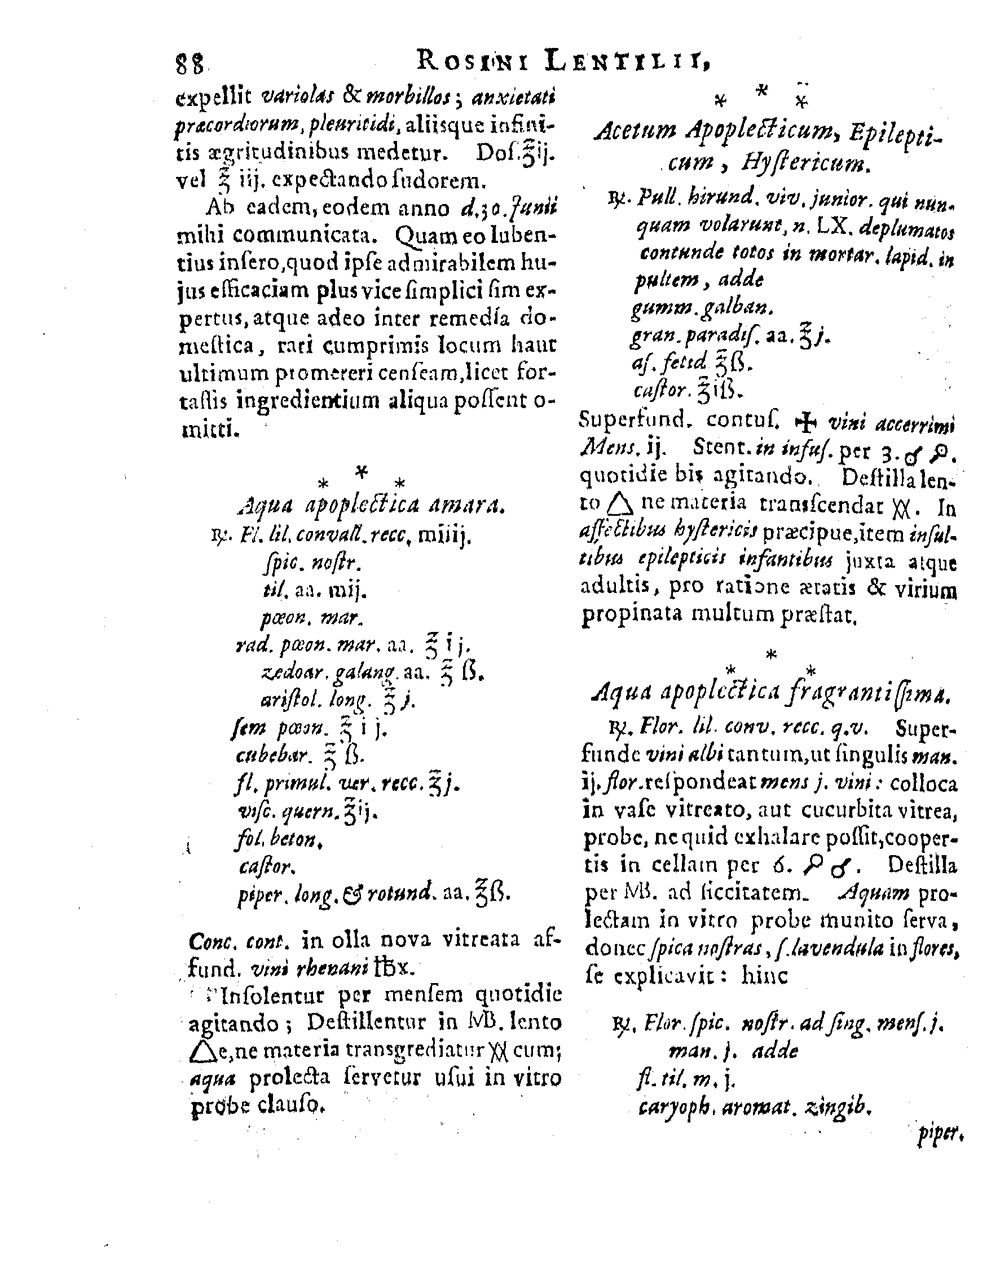 88 ROSINI LENTILII,
expellit variolas & morbillos; anxietati
præcordiorum, pleuritidi, aliisque infini-
tis ægritudinibus medetur. Dos. ℥ij.
vel ℥ iij. expectando sudorem.
Ab eadem, eodem anno d. 30. Junii
mihi communicata. Quam eo luben-
tius insero, quod ipse admirabilem hu-
jus efficaciam plus vice simplici sim ex-
pertus, atque adeo inter remedia do-
mestica, rari cumprimis locum haut
ultimum promereri censeam, licet for-
tassis ingredientium aliqua possent o-
mitti.
* * *
Aqua apoplectica amara.
℞. Fl. lil. convall. recc. miiij.
spic. nostr.
til. aa. mij.
pœon. mar.
rad. pœon. mar. aa. ℥ i j.
zedoar. galang. aa. ℥ ß.
aristol. long. ℥ j.
sem pœon. ℥ i j.
cubebar. ℥ ß.
fl. primul. ver. recc. ℥j.
visc. quern. ℥ij.
fol. beton.
castor.
piper. long. & rotund. aa. ℥ß.
Conc. cont. in olla nova vitreata af-
fund. vini rhenani ℔x.
Insolentur per mensem quotidie
agitando; Destillentur in MB. lento
△e, ne materia transgrediatur XX cum;
aqua prolecta servetur usui in vitro
probe clauso.
* * *
Acetum Apoplecticum, Epilepti-
cum, Hystericum.
℞. Pull. hirund. viv. junior. qui nun-
quam volarunt, n. LX. deplumatos
contunde totos in mortar. lapid. in
pultem, adde
gumm. galban.
gran. paradis. aa. ℥ j.
as. fetid ℥ß.
castor. ℥iß.
Superfund. contus. ✠ vini accerrimi
Mens. ij. Stent. in infus. per 3. ♂ ☌.
quotidie bis agitando. Destilla len-
to △ ne materia transscendat XX. In
affectibus hystericis præcipue, item insul-
tibus epilepticis infantibus juxta atque
adultis, pro ratione ætatis & virium
propinata multum præstat.
* * *
Aqua apoplectica fragrantissima.
℞. Flor. lil. conv. recc. q.v. Super-
funde vini albi tantum, ut singulis man.
ij. flor. respondeat mens j. vini: colloca
in vase vitreato, aut cucurbita vitrea,
probe, ne quid exhalare possit, cooper-
tis in cellam per 6. ☌ ♂. Destilla
per MB. ad siccitatem. Aquam pro-
lectam in vitro probe munito serva,
donec spica nostras, s. lavendula in flores,
se explicavit: hinc
℞. Flor. spic. nostr. ad sing. mens. j.
man. j. adde
fl. til. m. j.
caryoph. aromat. zingib.
piper.